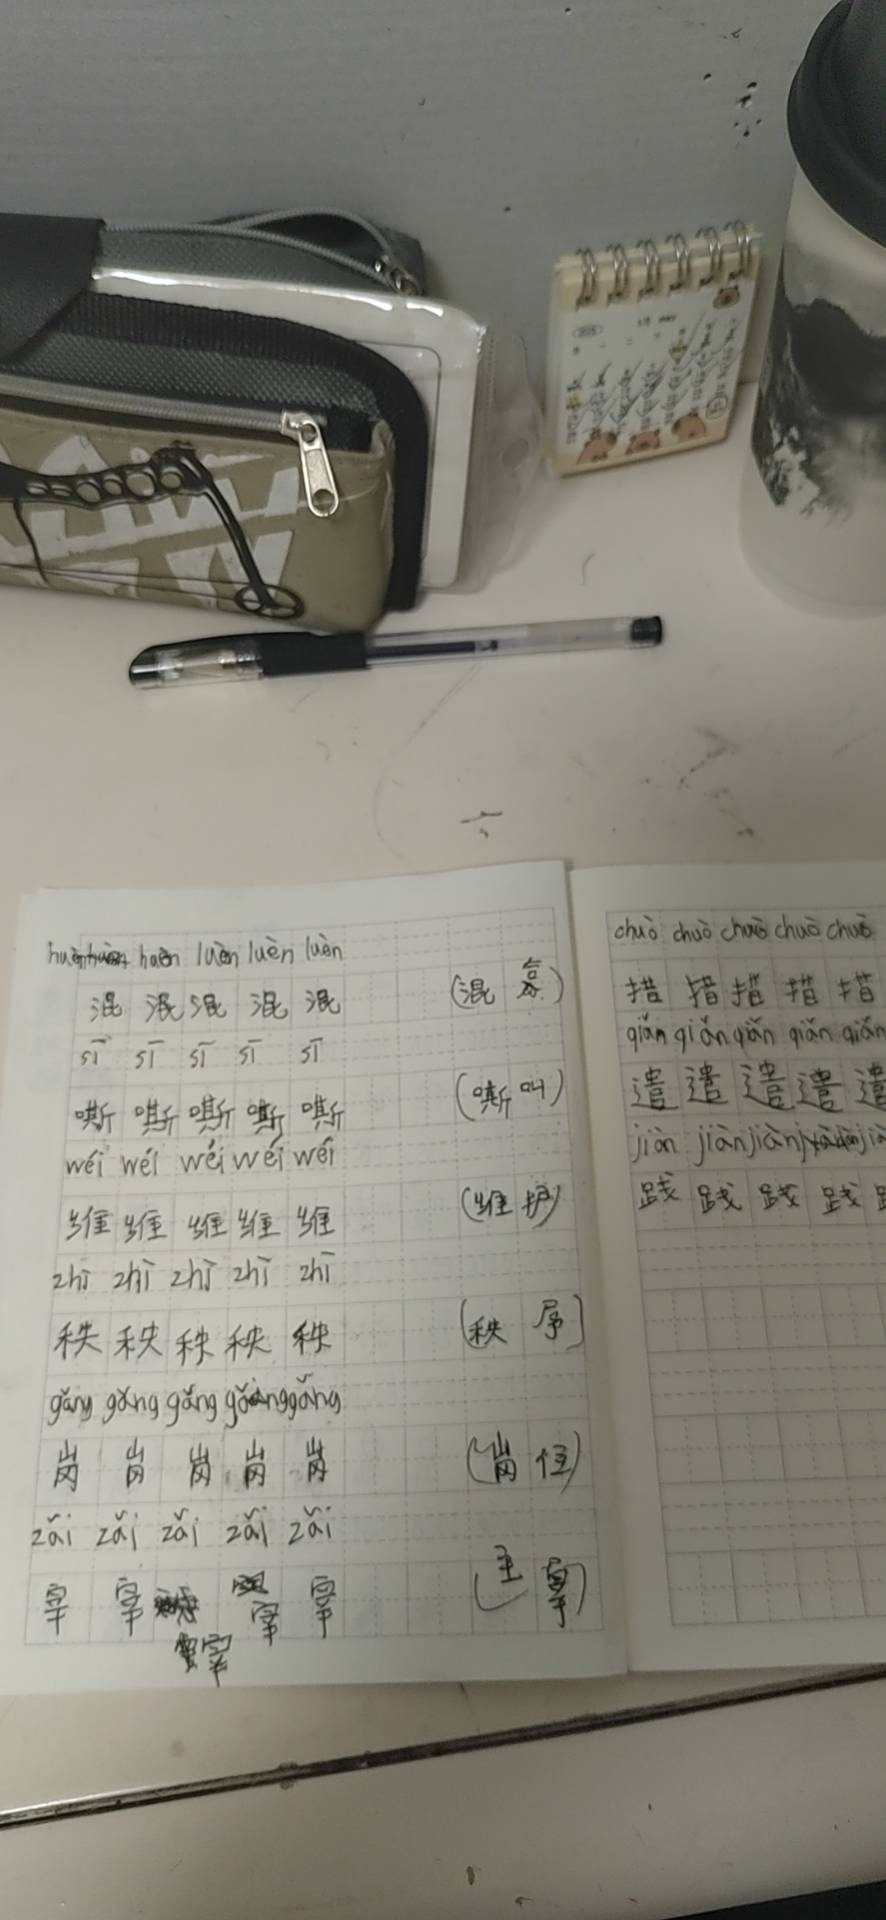 luèn luèn luèn
混 混 混 混 混 (混
sī sī sī sī sī
嘶 嘶 嘶 嘶 嘶 (嘶叫)
wéi wéi wéi wéi wéi
维 维 维 维 维 (维护)
zhī zhī zhī zhī zhī
秩 秩 秩 秩 秩 (秩序)
gǎng gǎng gǎng gǎng gǎng
岗 岗 岗 岗 岗 (岗位)
zǎi zǎi zǎi zǎi zǎi
宰 宰 宰 宰 宰 (主宰)
chuò chuò chuò chuò chuò
措 措 措 措 措
qiǎn qiǎn qiǎn qiǎn qiǎn
遣 遣 遣 遣 遣
jiàn jiàn jiàn
践 践 践 践